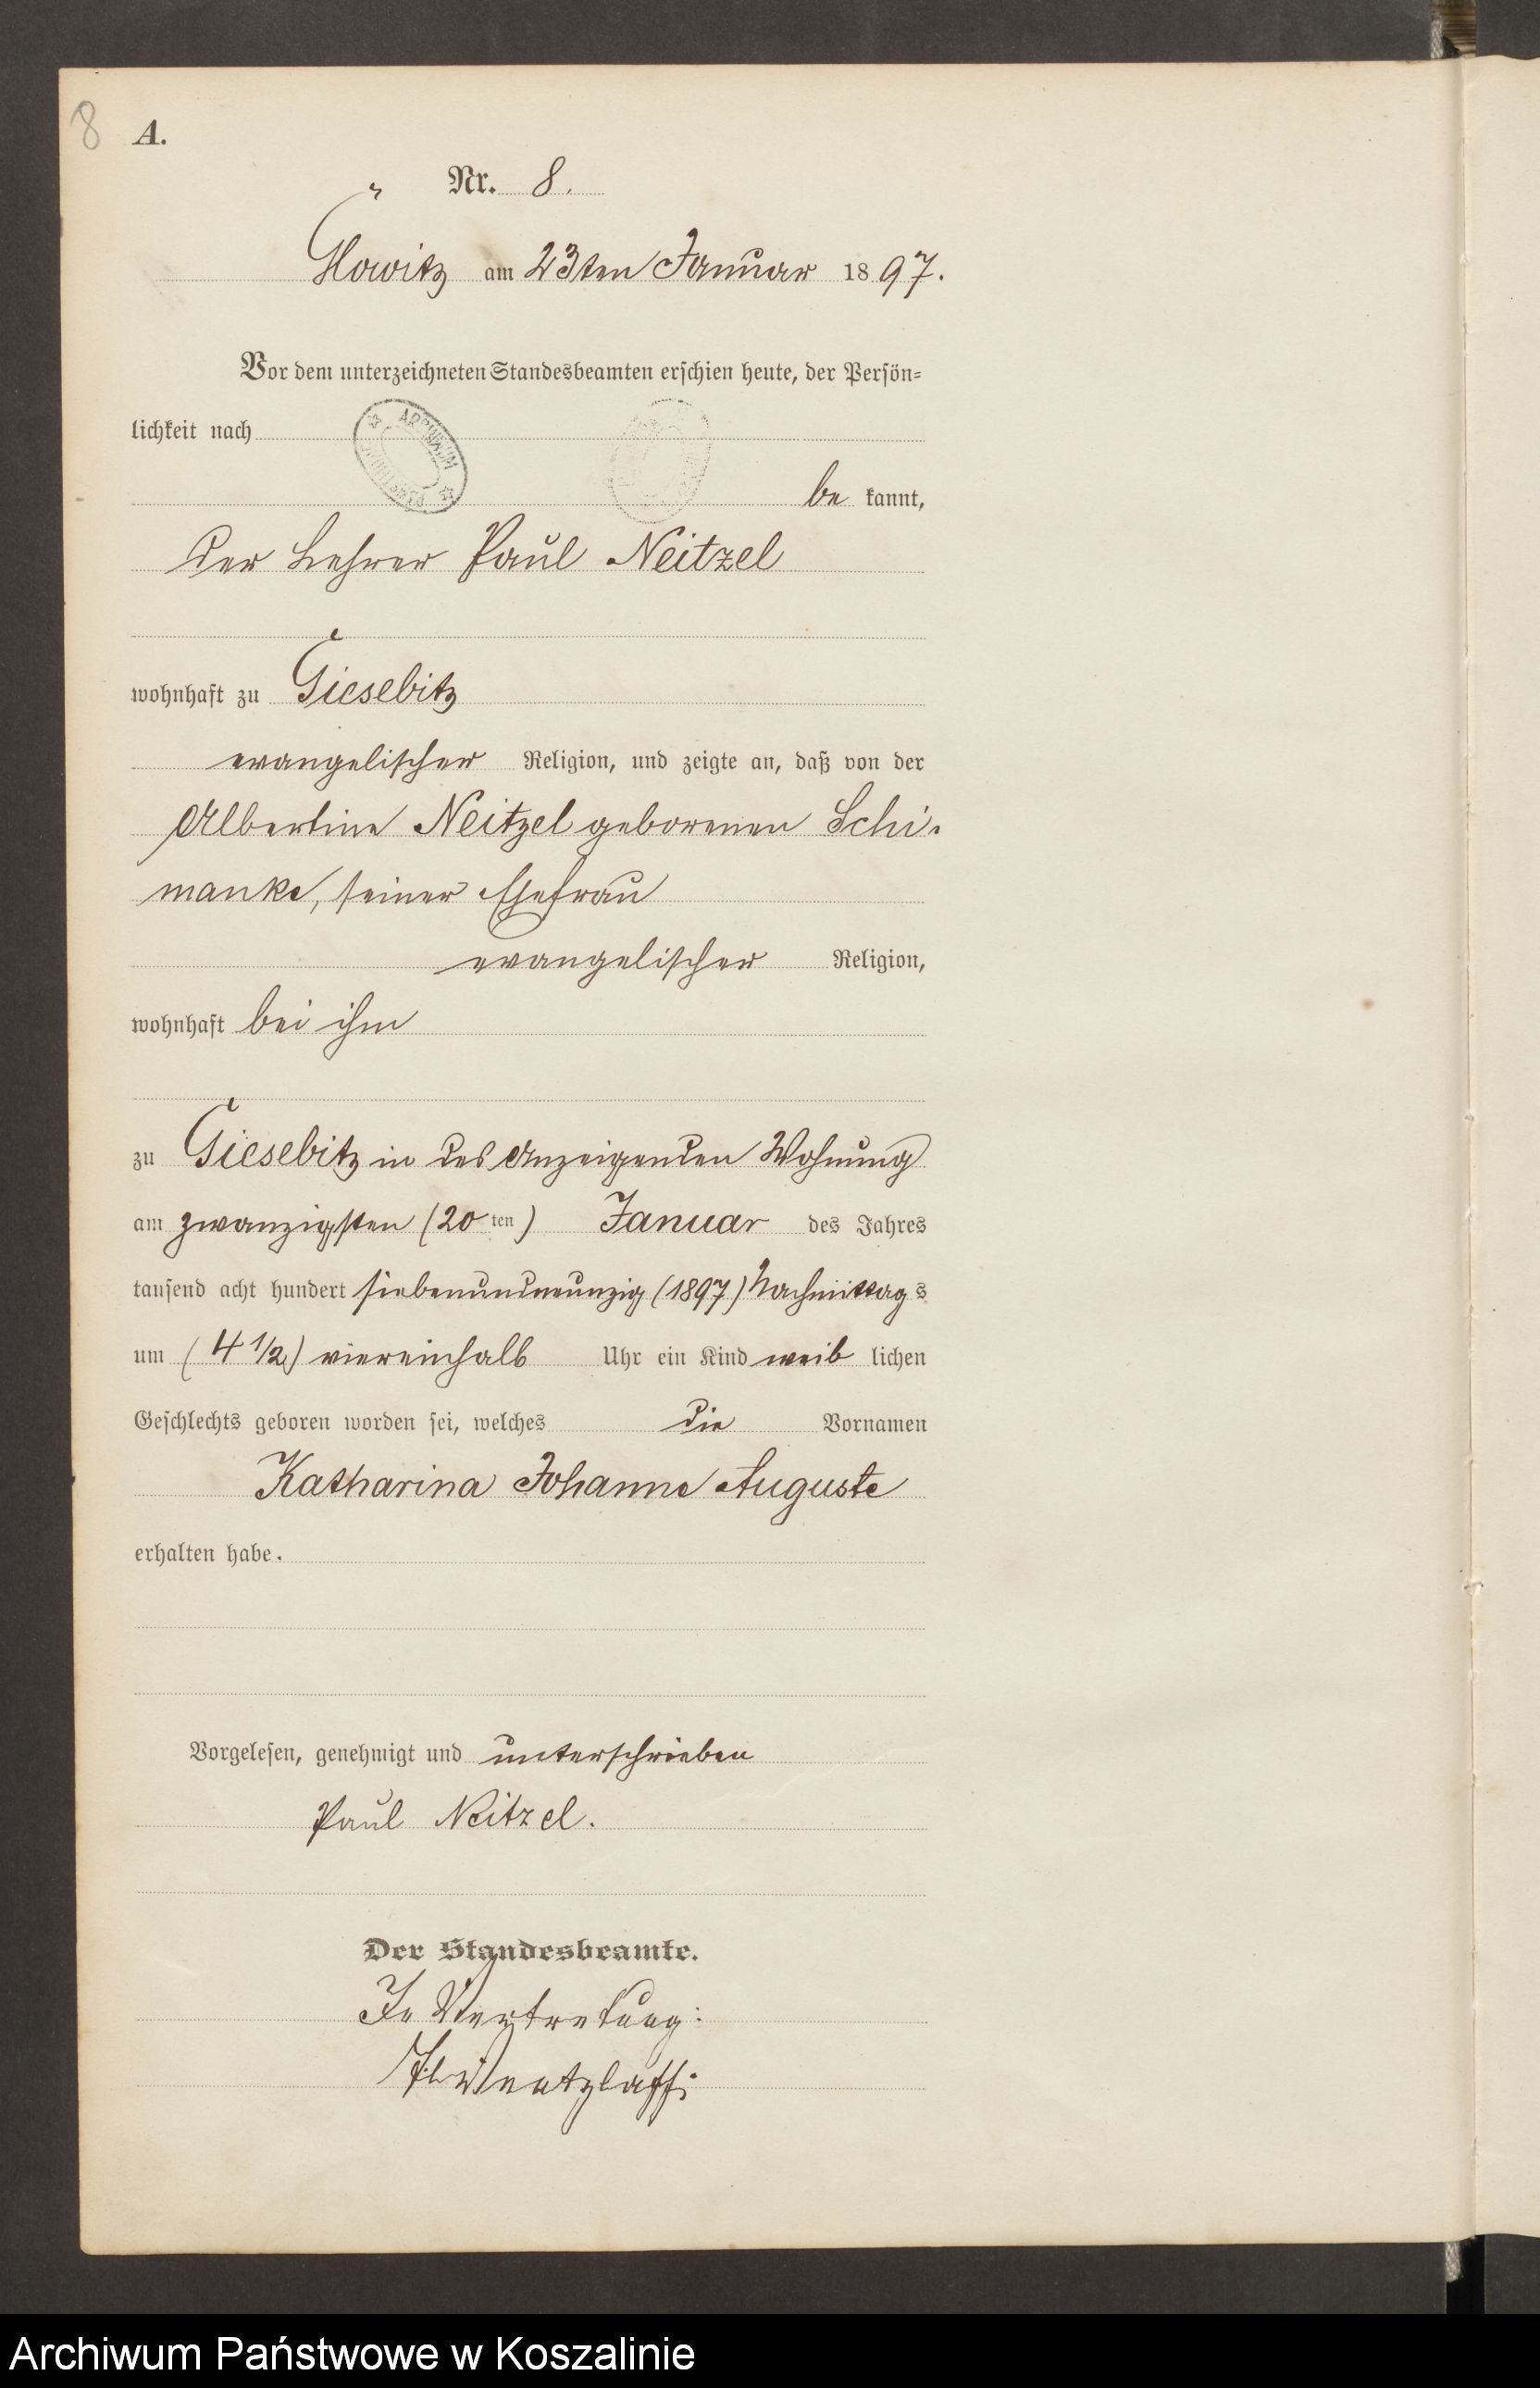 8
A.
Nr. 8.
Glowitz am 23ten Januar 1897.
Vor dem unterzeichneten Standesbeamten erschien heute, der Persön=
lichkeit nach
ARCHIWUM
be kannt,
der Lehrer Paul Neitzel
wohnhaft zu Giesebitz
evangelischer Religion, und zeigte an, daß von der
Albertine Neitzel geborenen Schi-
manke, seiner Ehefrau
evangelischer Religion,
wohnhaft bei ihm
zu Giesebitz in des Anzeigenden Wohnung
am zwanzigsten (20 ten) Januar des Jahres
tausend acht hundert siebenundneunzig (1897) Nachmittag s
um (4 1/2) viereinhalb Uhr ein Kind weib lichen
Geschlechts geboren worden sei, welches die Vornamen
Katharina Johanne Auguste
erhalten habe.
Vorgelesen, genehmigt und unterschrieben
Paul Neitzel.
Der Standesbeamte.
In Vertretung:
Archiwum Państwowe w Koszalinie